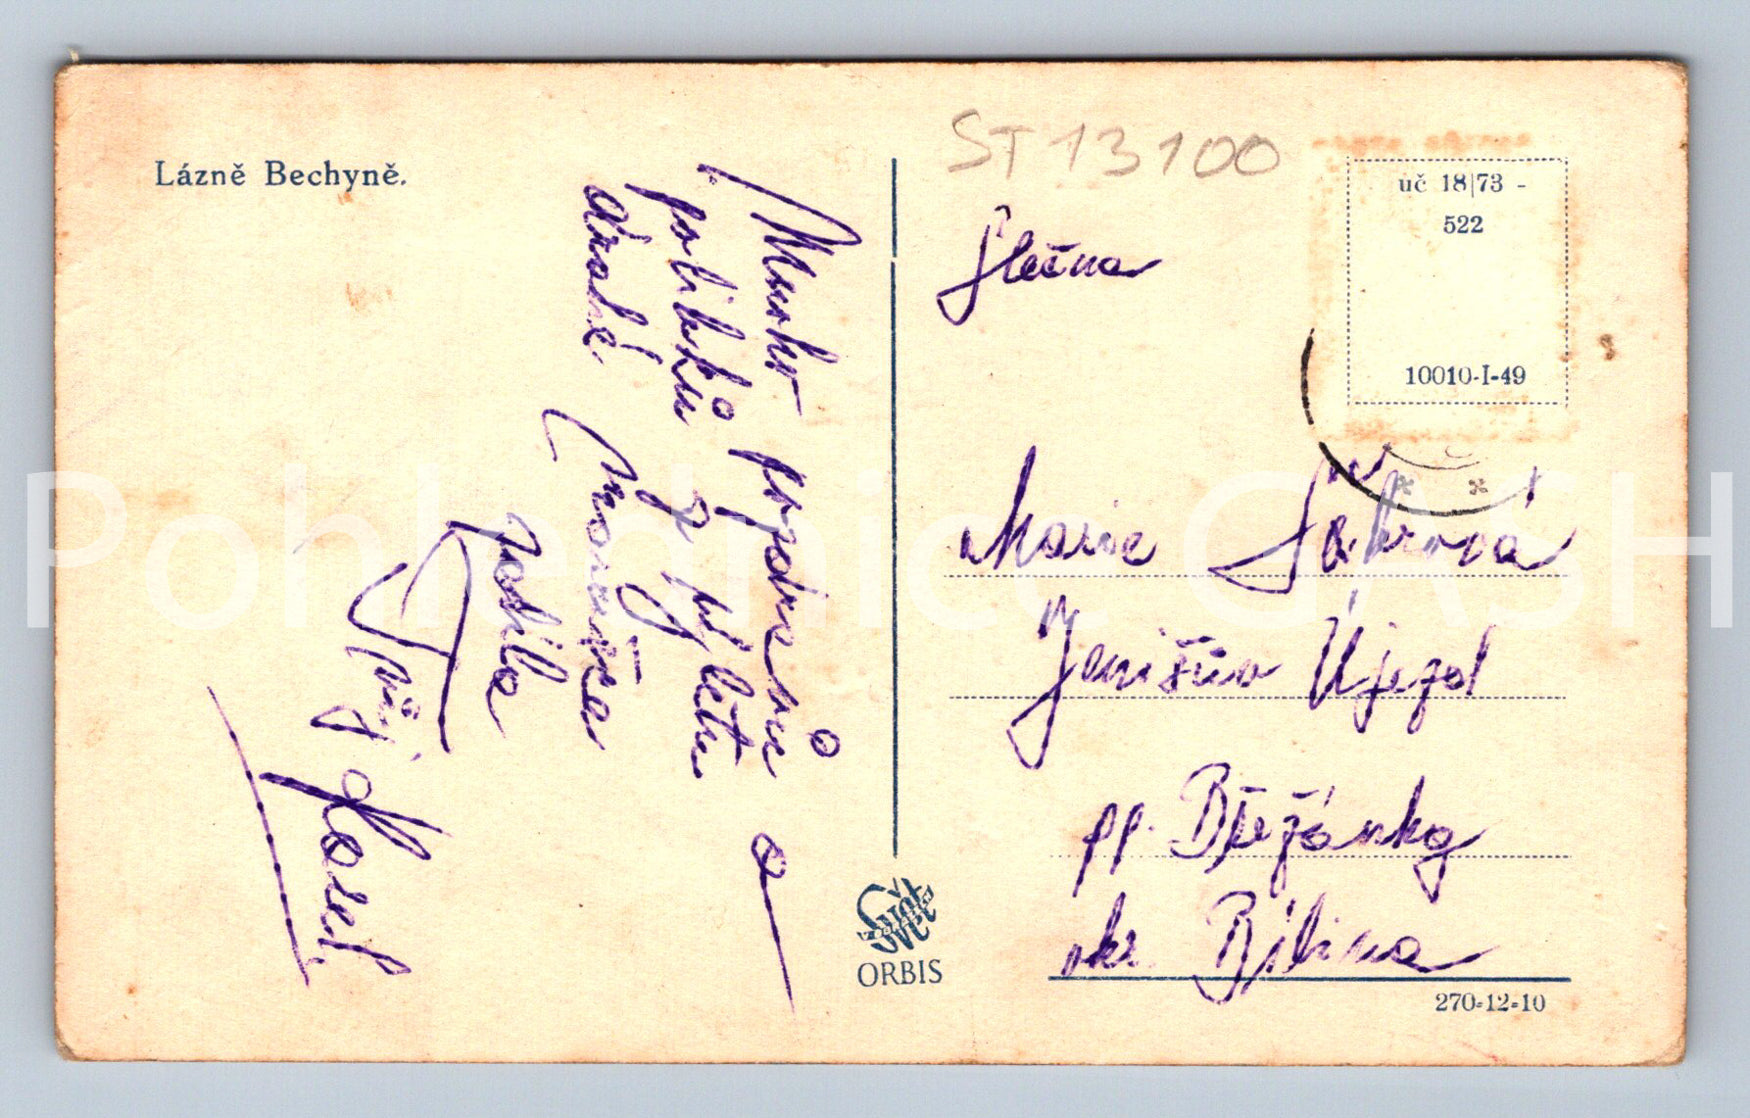 Lázně Bechyně.
ST 13100
uč 18|73 -
522
10010-I-49
Slečna
Marie
Jenišův Újezd
pp. Břežánky
okr. Bílina
Mnoho pozdravů a
polibků z výletu
drahé
posílá
Tvůj Karel
ORBIS
270-12-10
Pohlednice CASH